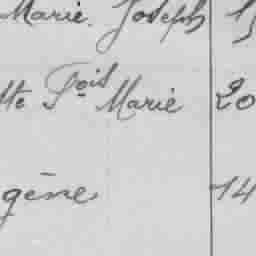 Marie Joseph 15
tte Fois Marie 20
gène 14